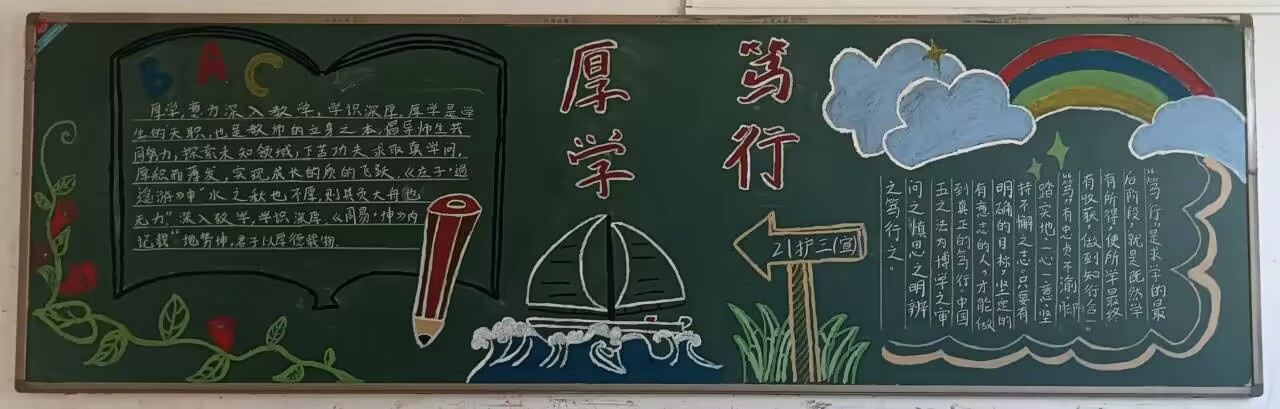 BAC
厚学,意为深入教学,学识深厚。厚学是学
生的天职,也是教师的立身之本,倡导师生共
同努力,探索未知领域,下苦功夫求取真学问,
厚积而薄发,实现成长的质的飞跃。《庄子·逍
遥游》中"水之积也不厚,则其负大舟也
无力"深入教学,学识深厚。《周易·坤》内
记载"地势坤,君子以厚德载物。
厚学
笃行
21护三(宣)
"笃行"是求学的最
后阶段,就是既然学
有所得,使所学最终
有收获,做到知行合一
"笃"有忠贞不渝,脚
踏实地,一心一意,坚
持不懈之志。只要有
明确的目标,坚定的
有意志的人,才能做
到真正的笃行。中国
五之法为博学之审
问之慎思之明辨
之笃行之。